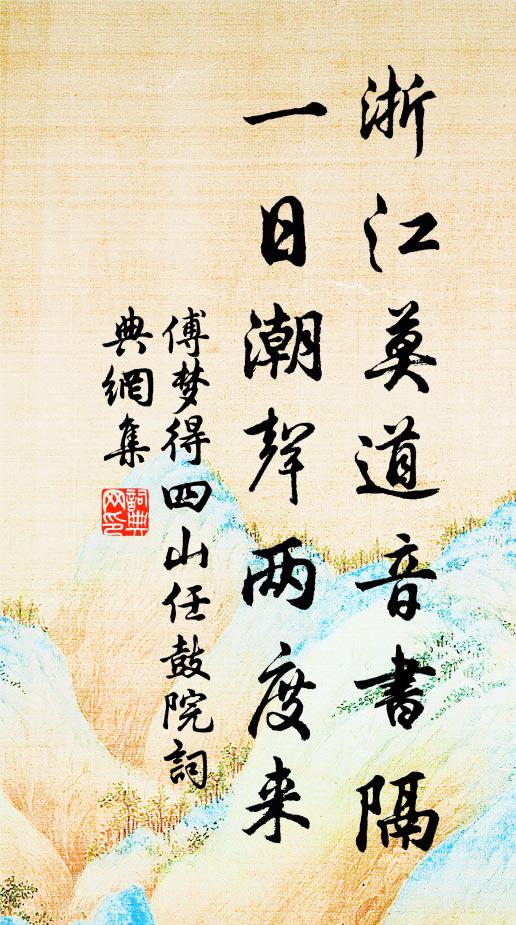 浙江莫道音書隔
一日潮聲两度来
傅梦得四山任鼓院詞
典網集
詞典網印